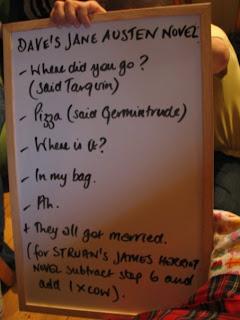 DAVE'S JANE AUSTEN NOVEL
- Where did you go?
(said Tarquin)
- Pizza (said Germintrude)
- Where is it?
- In my bag.
- Ah.
+ They all got married.
(for STRUAN'S JAMES HERRIOT
NOVEL subtract step 6 and
add 1 x cow).